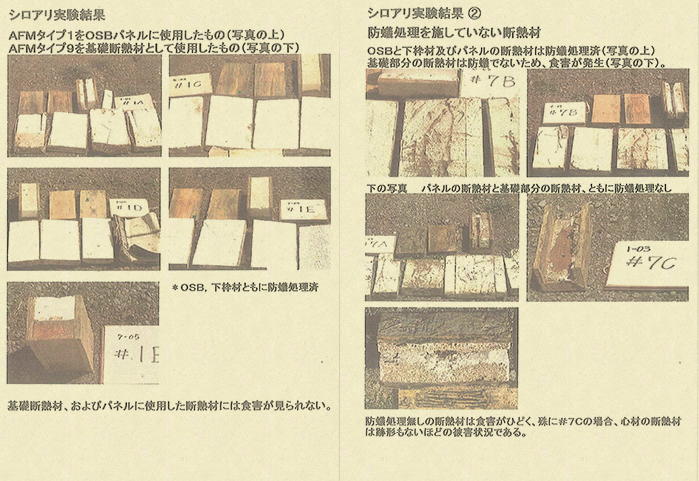 シロアリ実験結果
AFMタイプ1をOSBパネルに使用したもの(写真の上)
AFMタイプ9を基礎断熱材として使用したもの(写真の下)
#1A
#1C
#1D
#1E
*OSB，下枠材ともに防蟻処理済
7-05
#1E
基礎断熱材、およびパネルに使用した断熱材には食害が見られない。
シロアリ実験結果 ②
防蟻処理を施していない断熱材
OSBと下枠材及びパネルの断熱材は防蟻処理済(写真の上)
基礎部分の断熱材は防蟻でないため、食害が発生(写真の下)。
#7B
#7B
下の写真 パネルの断熱材と基礎部分の断熱材、ともに防蟻処理なし
#7A
1-03
#7C
防蟻処理無しの断熱材は食害がひどく、殊に#7Cの場合、心材の断熱材
は跡形もないほどの被害状況である。